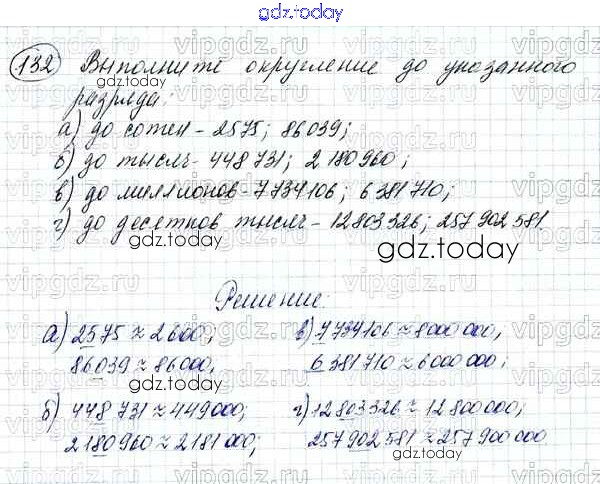 gdz.today
132 Выполните округление до указанного
gdz.today
разряда:
а) до сотен - 2575; 86039;
б) до тысяч - 448 731; 2 180 960;
в) до миллионов - 7 734 106; 6 381 710;
г) до десятков тысяч - 12 803 326; 257 902 581.
gdz.today gdz.today
Решение:
а) 2575 ≈ 2600; в) 7 734 106 ≈ 8 000 000;
gdz.today
86039 ≈ 86000. 6 381 710 ≈ 6 000 000;
gdz.today
б) 448 731 ≈ 449 000; г) 12 803 326 ≈ 12 800 000;
2 180 960 ≈ 2 181 000; 257 902 581 ≈ 257 900 000
gdz.today gdz.today